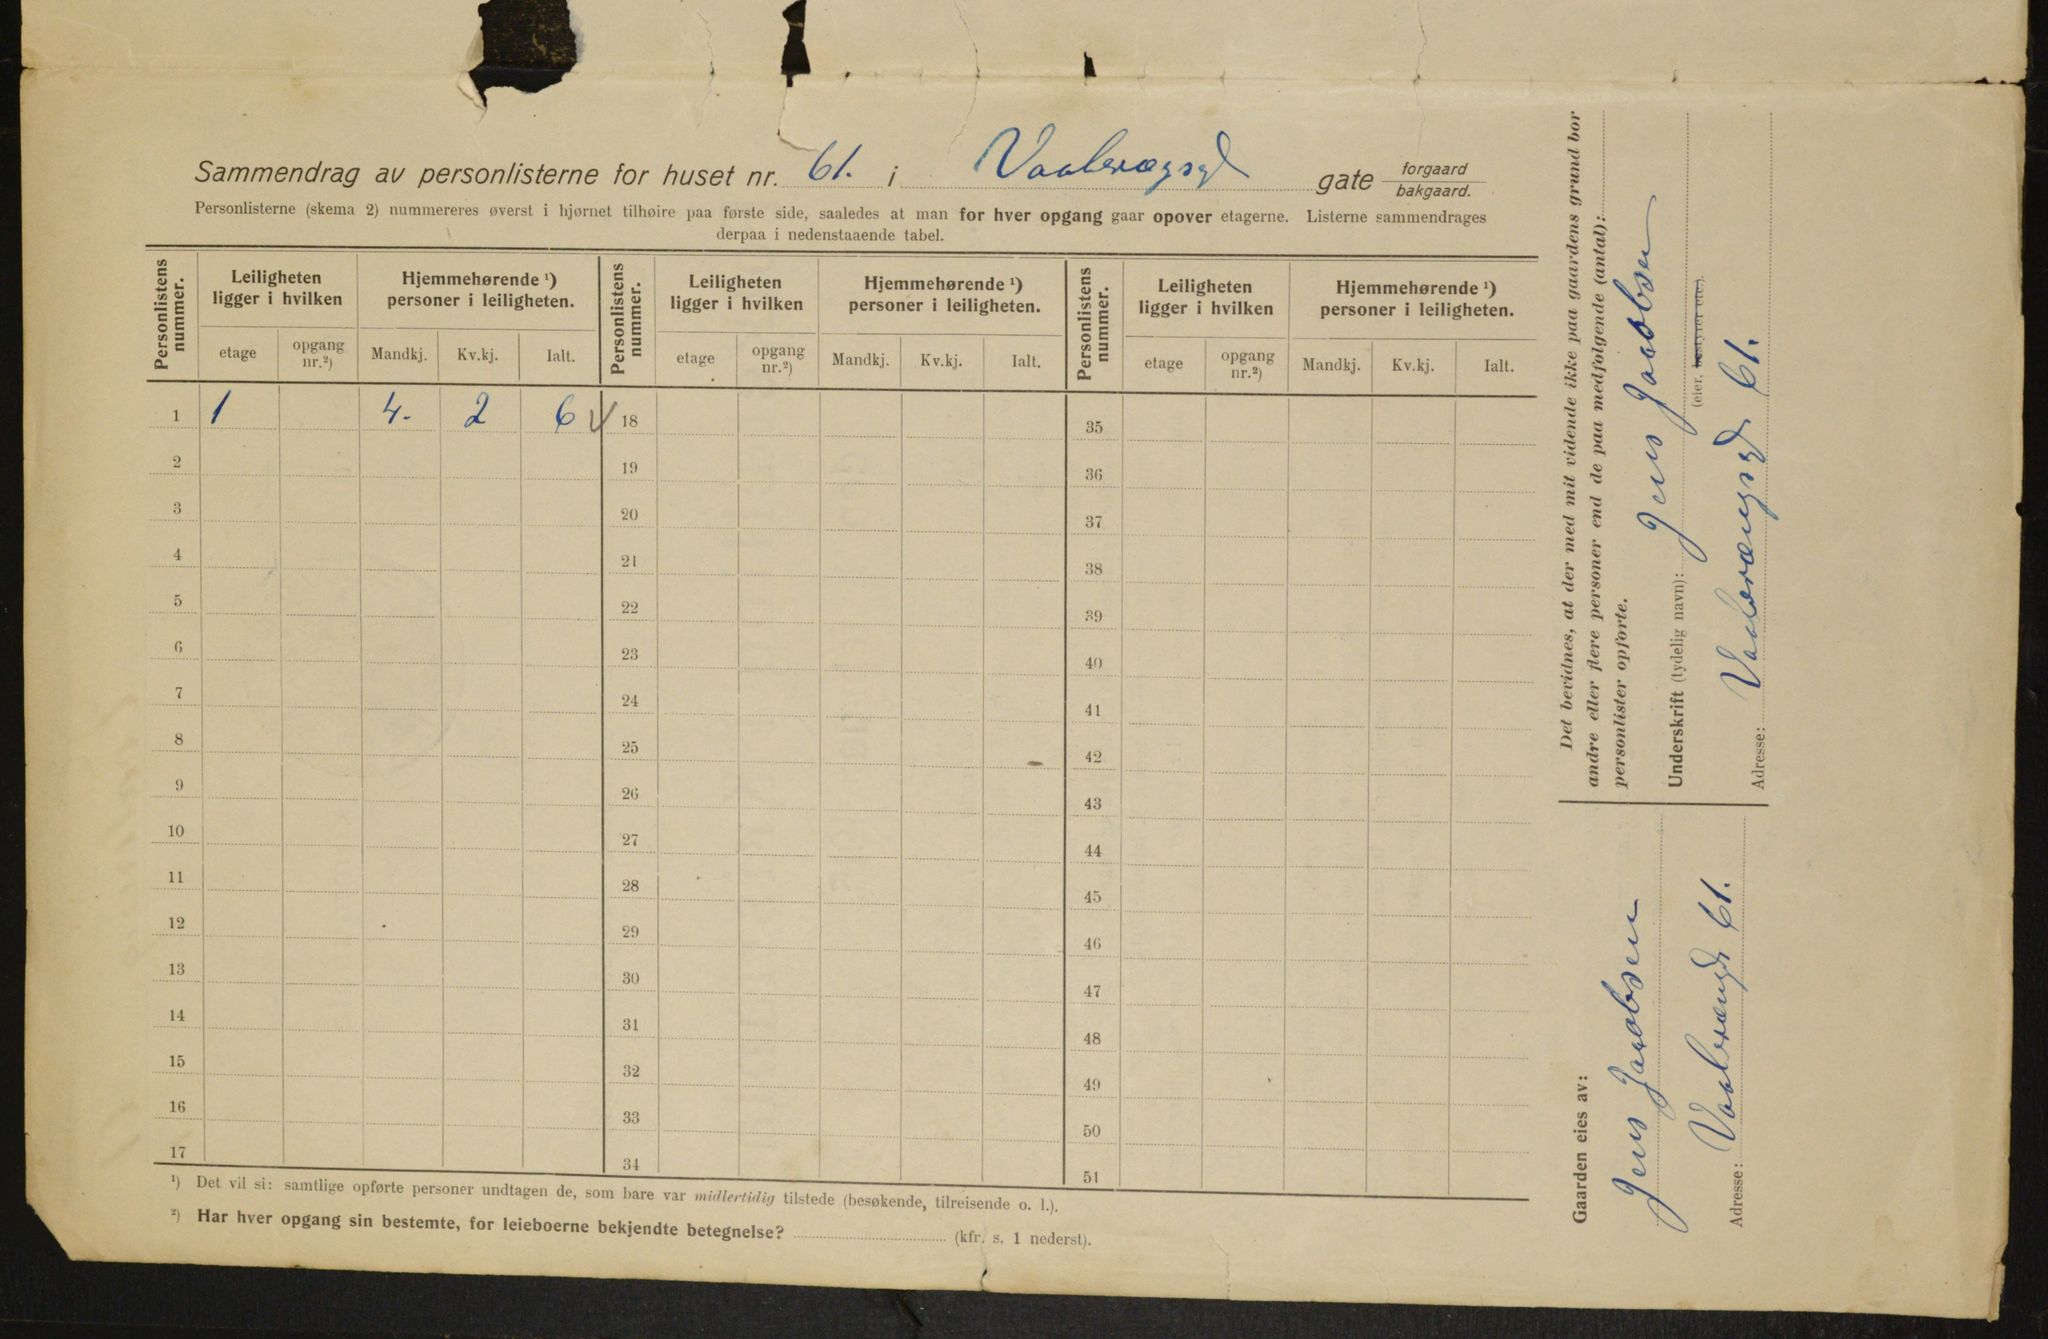 Sammendrag av personlisterne for huset nr. 61. i Vaalerængsgt gate forgaard bakgaard.
Personlisterne (skema 2) nummereres øverst i hjørnet tilhøire paa første side, saaledes at man for hver opgang gaar opover etagerne. Listerne sammendrages
derpaa i nedenstaaende tabel.
Personlistens nummer. Leiligheten ligger i hvilken Hjemmehørende ¹) personer i leiligheten. Personlistens nummer. Leiligheten ligger i hvilken Hjemmehørende ¹) personer i leiligheten. Personlistens nummer. Leiligheten ligger i hvilken Hjemmehørende ¹) personer i leiligheten.
etage opgang nr.²) Mandkj. Kv.kj. Ialt. etage opgang nr.²) Mandkj. Kv.kj. Ialt. etage opgang nr.²) Mandkj. Kv.kj. Ialt.
1 1 4. 2 6 18 35
2 19 36
3 20 37
4 21 38
5 22 39
6 23 40
7 24 41
8 25 42
9 26 43
10 27 44
11 28 45
12 29 46
13 30 47
14 31 48
15 32 49
16 33 50
17 34 51
¹) Det vil si: samtlige opførte personer undtagen de, som bare var midlertidig tilstede (besøkende, tilreisende o. l.).
²) Har hver opgang sin bestemte, for leieboerne bekjendte betegnelse? (kfr. s. 1 nederst).
Det bevidnes, at der med mit vidende ikke paa gaardens grund bor
andre eller flere personer end de paa medfølgende (antal):
personlister opførte.
Underskrift (tydelig navn): Jens Jacobsen
(eier, bestyrer etc.)
Adresse: Vaalerængsgt 61.
Gaarden eies av:
Jens Jacobsen
Adresse: Vaalerængsgt 61.